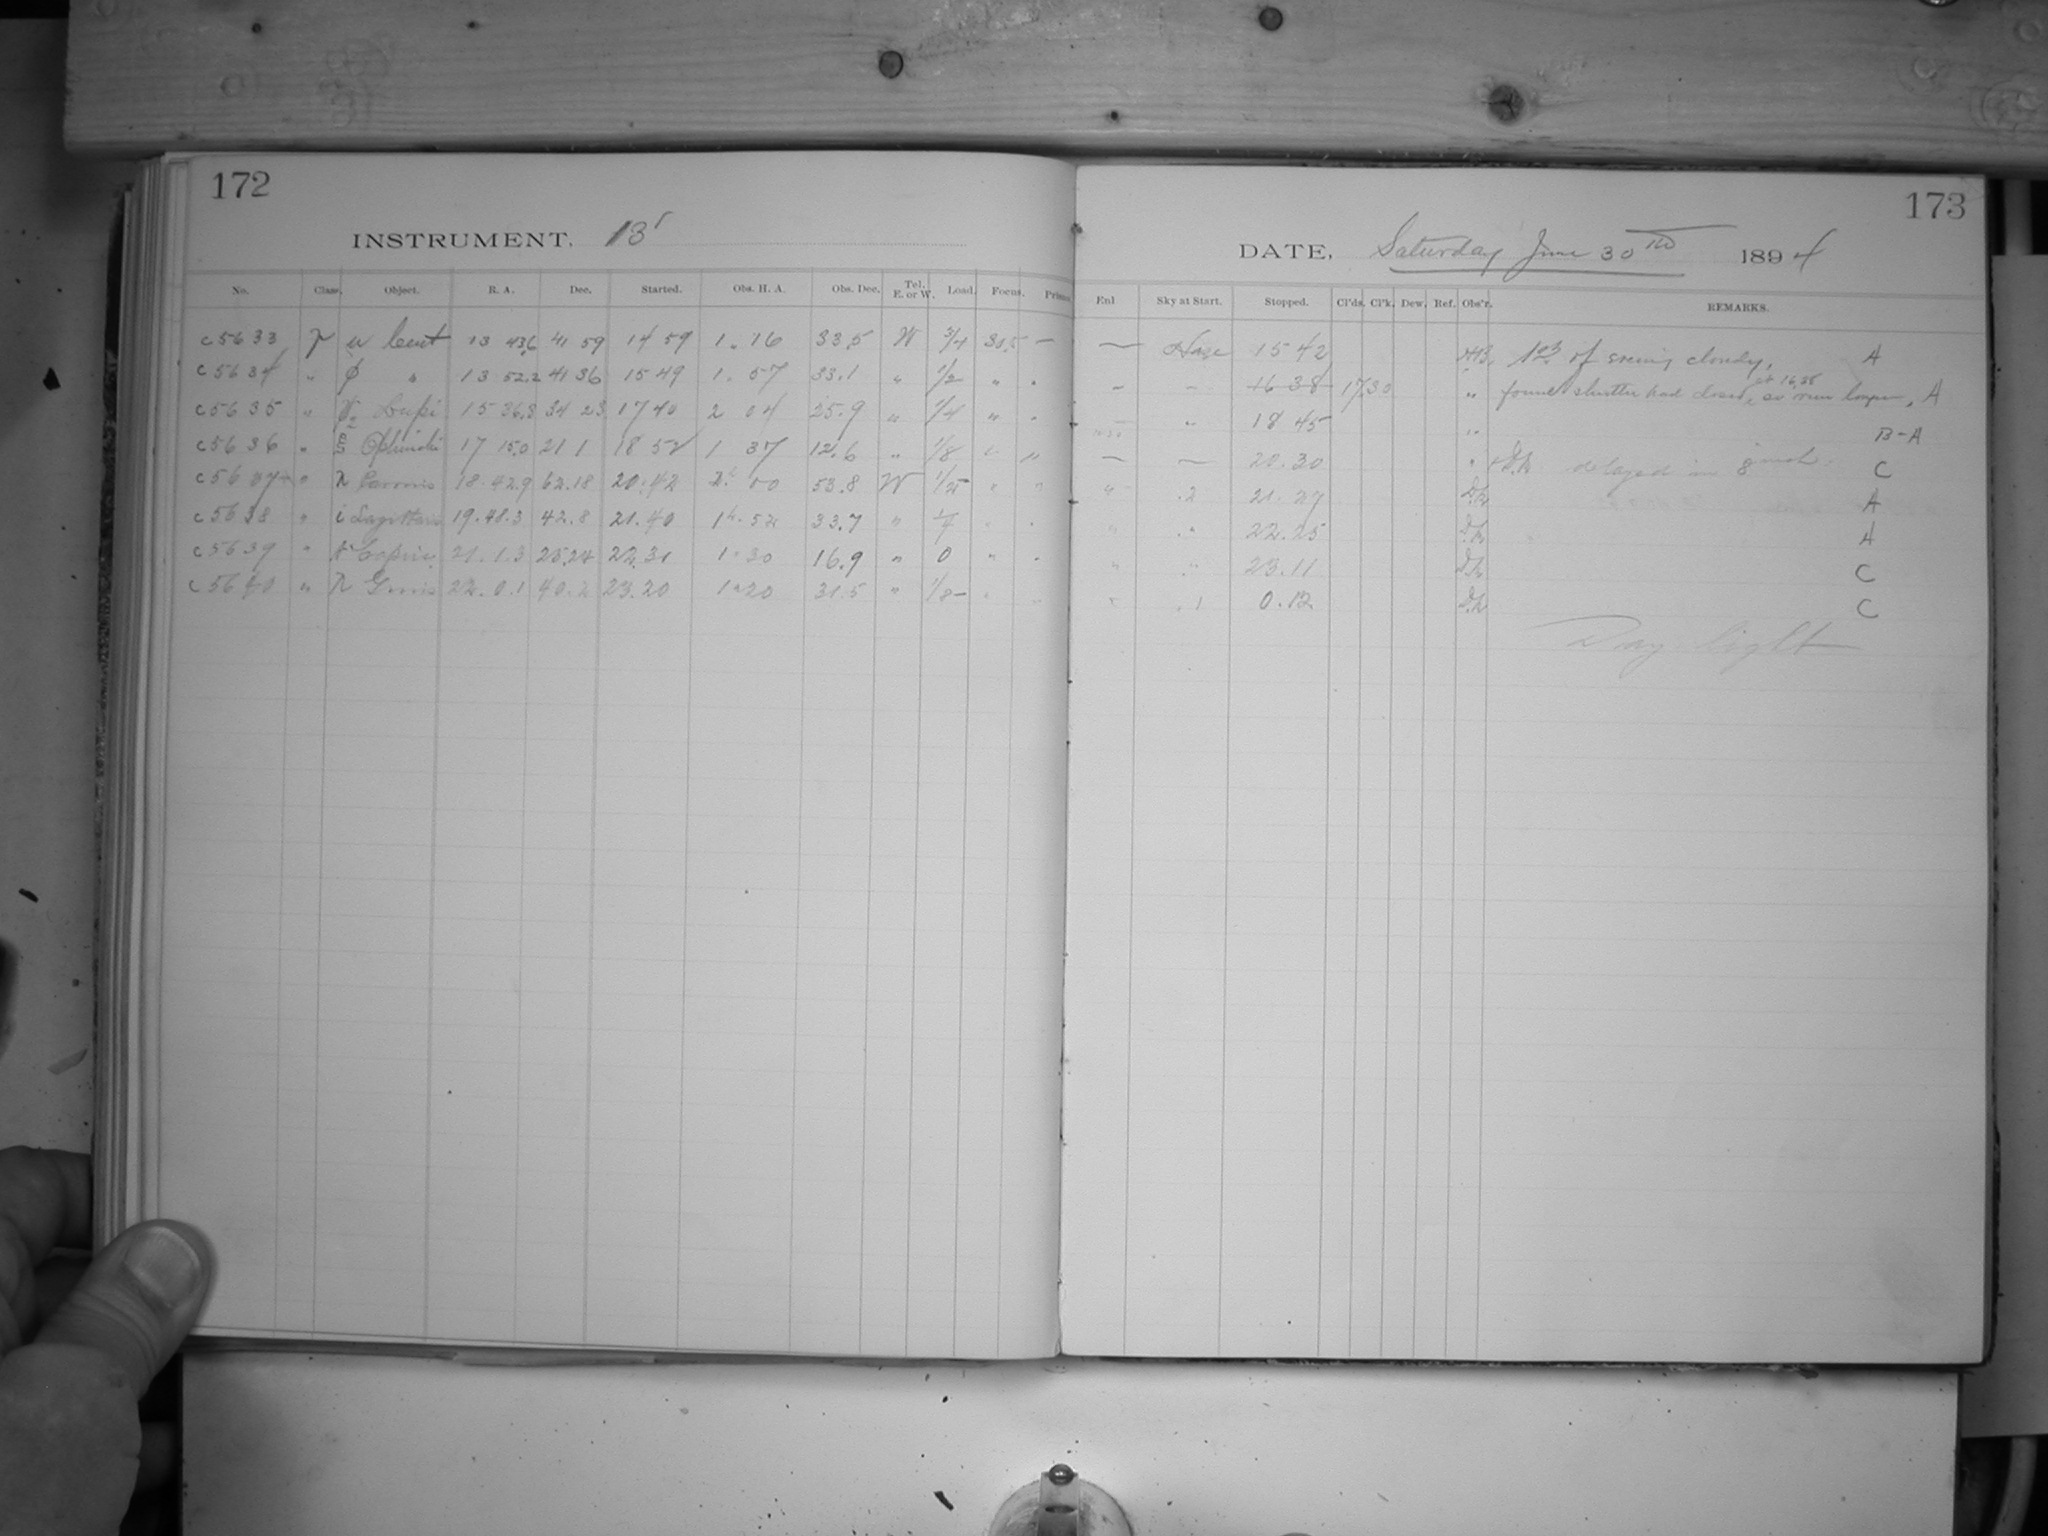 172
INSTRUMENT. 13"
No. Class. Object. R. A. Dec. Started. Obs. H. A. Obs. Dec. Tel. E. or W. Load. Focus. Prisms.
c5633 u Cent 13 43.6 41 59 14 59 1 " 16 33.5 W 3/4 30.5 —
c5634 " φ " 13 52.2 41 36 15 49 1. 57 33.1 " 1/2 " "
c5635 " Lupi 15 36.8 34 23 17 40 2 04 25.9 " 1/4 " "
c5636 " ξ Ophiuchi 17 15.0 21 1 18 52 1 37 12.6 " 1/8 " "
c5637 " λ Pavonis 18.42.9 62.18 20.42 2h 00 53.8 W " "
c5638 " i Sagittarii 19.48.3 42.8 21.40 1h.52 33.7 " " "
c5639 " Capric. 21.1.3 25.24 22.31 1.30 16.9 " 0 " "
c5640 " λ Gruis 22.0.1 40.2 23.20 1h20 31.5 " 1/8 " "
173
DATE, Saturday June 30th 1894
Enl Sky at Start. Stopped. Cl'ds. Cl'k. Dew. Ref. Obs'r. REMARKS.
— Haze 15 42 1st of evening cloudy, A
— — 16 38 17.30 " found shutter had closed, at 16.38 so run longer, A
" 18 45 " B-A
— — 20.30 " delayed in C
" .2 21.27 D.h. A
" " 22.25 D.h. A
" " 23.11 D.h. C
" .1 0.12 D.h. C
Day light